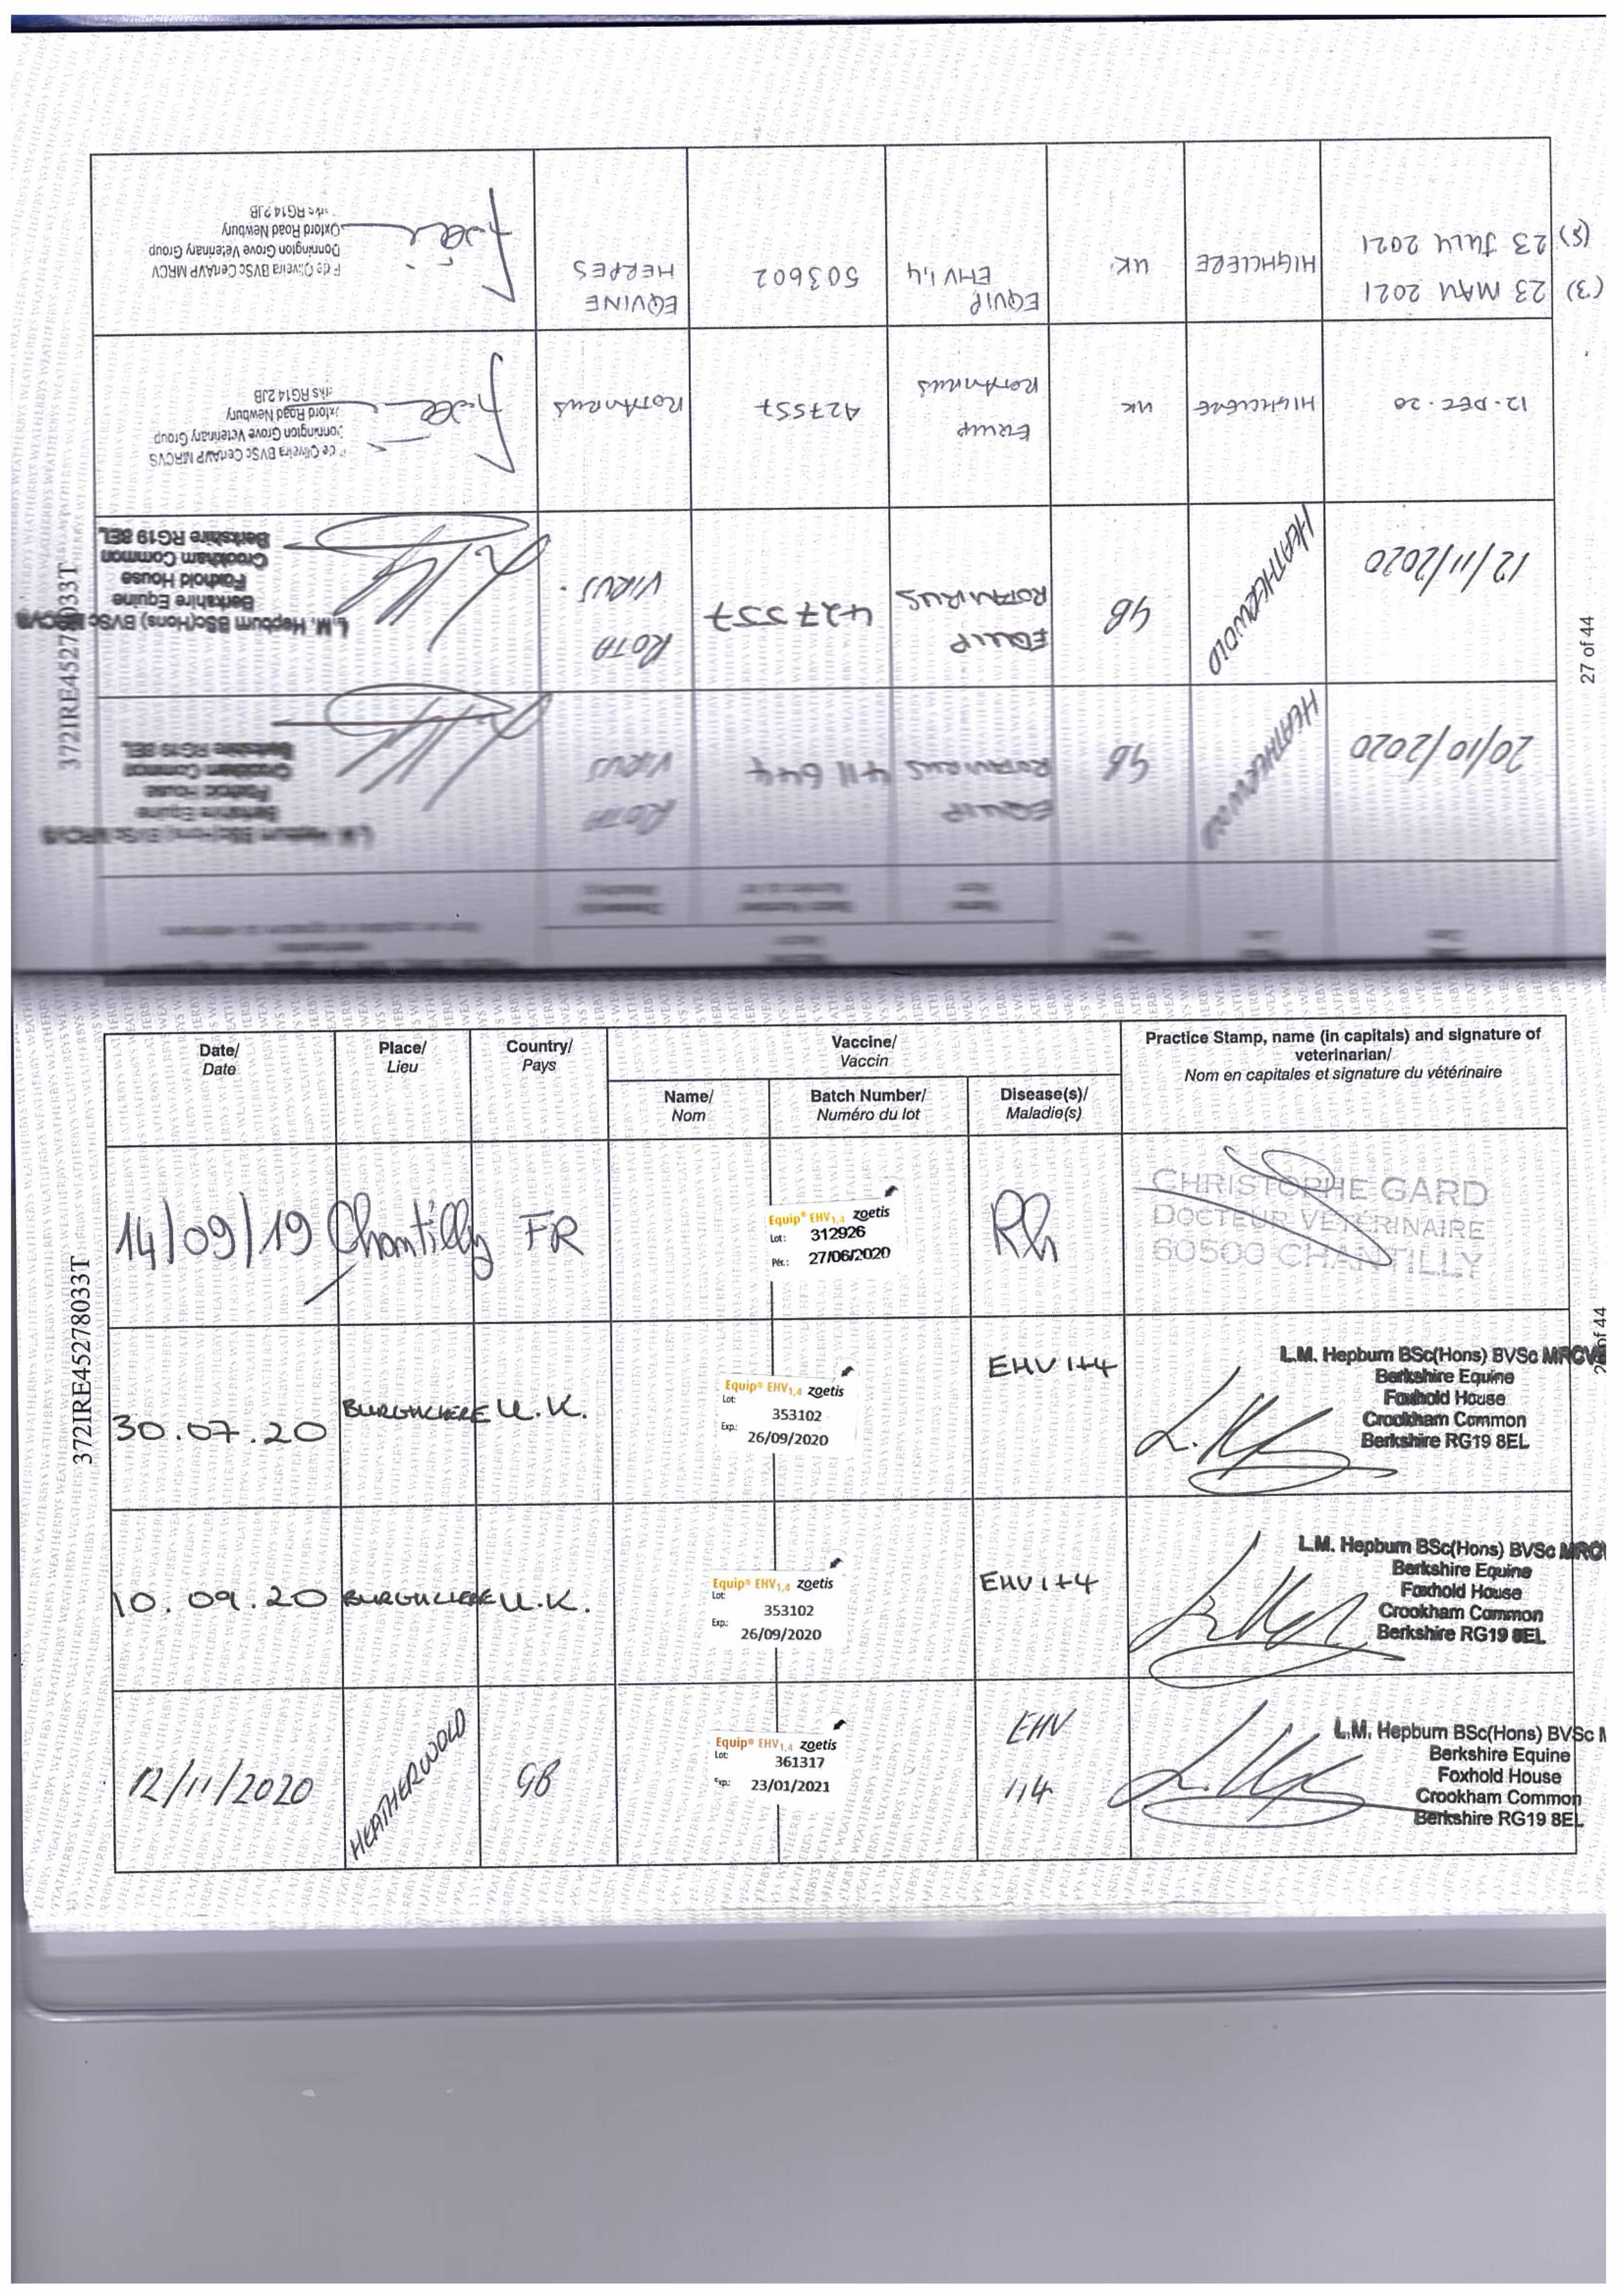 372IRE45278033T
Date/
Date
Place/
Lieu
Country/
Pays
Vaccine/
Vaccin
Name/
Nom
Batch Number/
Numéro du lot
Disease(s)/
Maladie(s)
Practice Stamp, name (in capitals) and signature of
veterinarian/
Nom en capitales et signature du vétérinaire
14/09/19 Chantilly FR
Equip® EHV1,4 zoetis
Lot: 312926
Pér.: 27/06/2020
Rh
CHRISTOPHE GARD
DOCTEUR VETERINAIRE
60500 CHANTILLY
30.07.20 BURGHCLERE U.K.
Equip® EHV1,4 zoetis
Lot:
353102
Exp:
26/09/2020
EHV 1+4
L.M. Hepburn BSc(Hons) BVSc MRCVS
Berkshire Equine
Foxhold House
Crookham Common
Berkshire RG19 8EL
10.09.20 BURGHCLERE U.K.
Equip® EHV1,4 zoetis
Lot:
353102
Exp:
26/09/2020
EHV 1+4
L.M. Hepburn BSc(Hons) BVSc MRCV
Berkshire Equine
Foxhold House
Crookham Common
Berkshire RG19 8EL
12/11/2020 HEATHERWOLD GB
Equip® EHV1,4 zoetis
Lot:
361317
Exp:
23/01/2021
EHV
1,4
L.M. Hepburn BSc(Hons) BVSc M
Berkshire Equine
Foxhold House
Crookham Common
Berkshire RG19 8EL
of 44
20/10/2020 HEATHERWOLD GB
EQUIP
ROTAVIRUS 411644
ROTA
VIRUS
L.M. Hepburn BSc(Hons) BVSc MRCVS
Berkshire Equine
Foxhold House
Crookham Common
Berkshire RG19 8EL
12/11/2020 HEATHERWOLD GB
EQUIP
ROTAVIRUS
427557
ROTA
VIRUS.
L.M. Hepburn BSc(Hons) BVSc MRCVS
Berkshire Equine
Foxhold House
Crookham Common
Berkshire RG19 8EL
12.DEC.20 HIGHCLERE UK
Equip
Rotavirus
A27557
ROTAVIRUS
de Oliveira BVSc CertAVP MRCVS
Donnington Grove Veterinary Group
Oxford Road Newbury
rks RG14 2JB
(3) 23 MAY 2021
(5) 23 JULY 2021
HIGHCLERE
UK
EQUIP
EHV 1,4
503602
EQUINE
HERPES
F de Oliveira BVSc CertAVP MRCV
Donnington Grove Veterinary Group
Oxford Road Newbury
rks RG14 2JB
27 of 44
372IRE45278033T